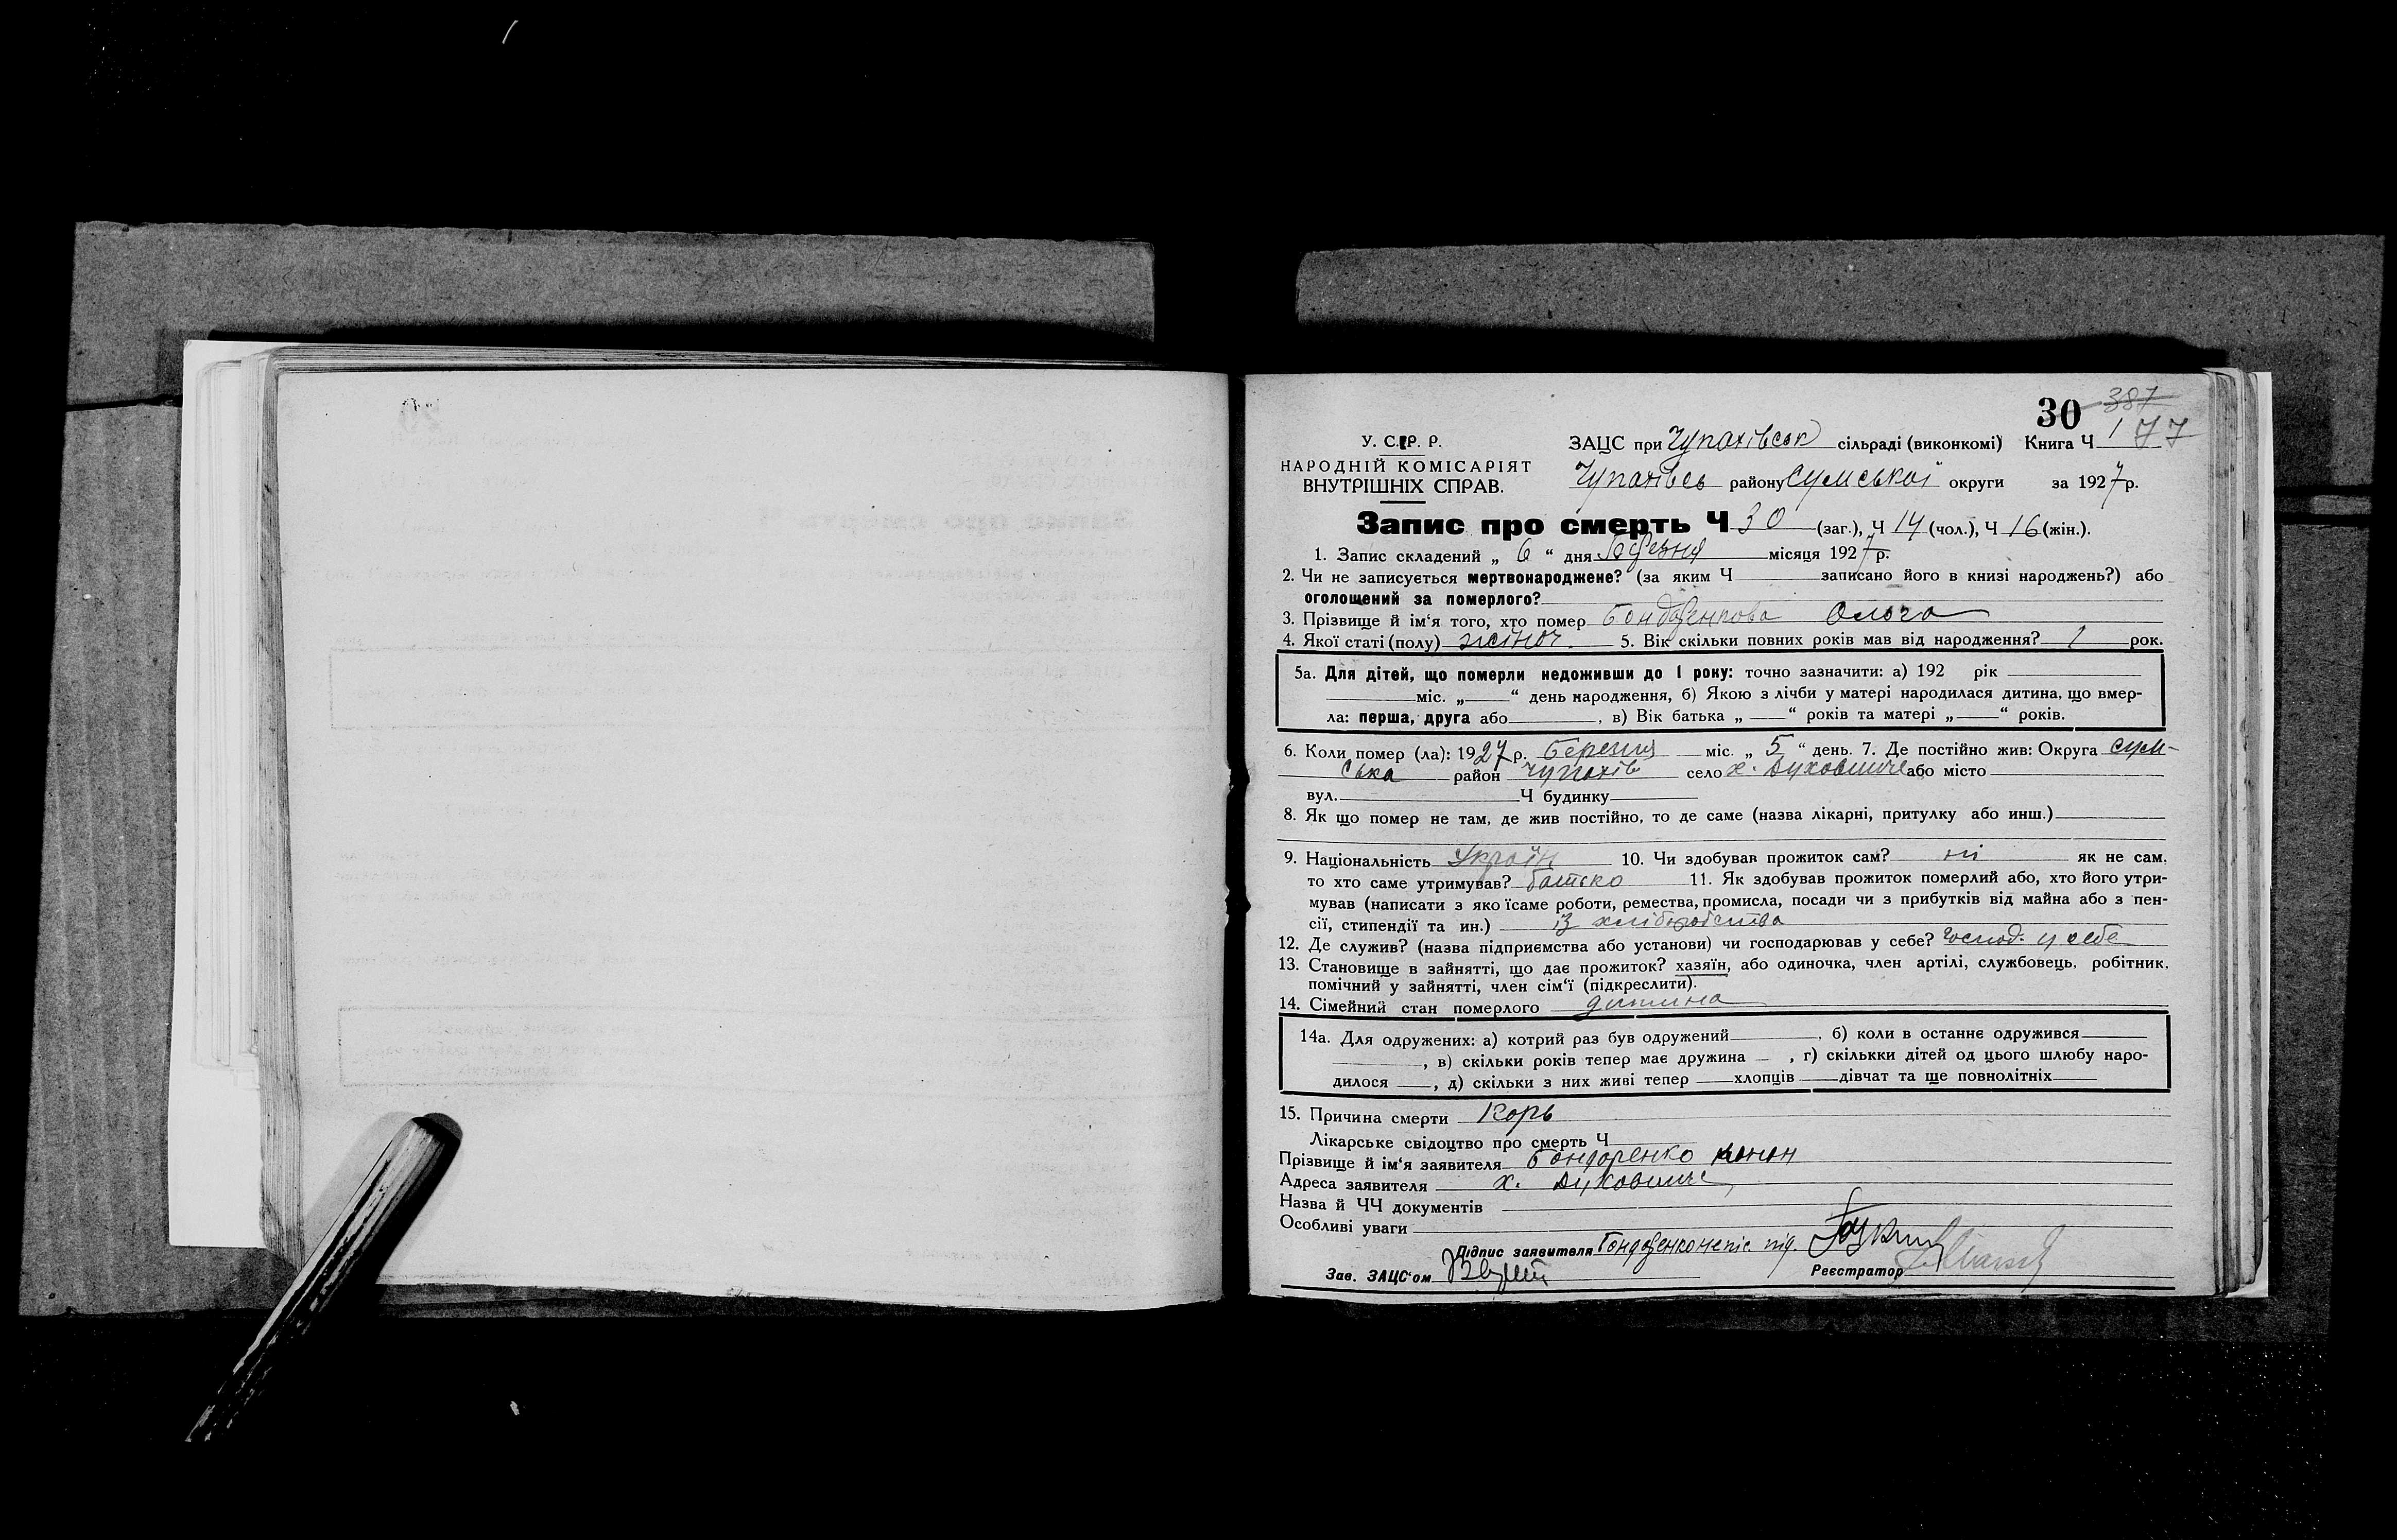 30 387
У. С. Р. Р. ЗАЦС при Чупахівськ сільраді (виконкомі) Книга Ч 1 77
НАРОДНІЙ КОМІСАРІЯТ
ВНУТРІШНІХ СПРАВ.
Чупахівсь району Сумської округи за 1927 р.
Запис про смерть Ч 30 (заг.), Ч 14 (чол.), Ч 16 (жін.).
1. Запис складений „ 6 “ дня березня місяця 1927 р.
2. Чи не записується мертвонароджене? (за яким Ч записано його в книзі народжень?) або
оголощений за померлого?
3. Прізвище й ім‘я того, хто помер Бондаренкова Ольга
4. Якої статі (полу) жіноч. 5. Вік скільки повних років мав від народження? 1 рок.
5а. Для дітей, що померли недоживши до 1 року: точно зазначити: а) 192 рік
міс. „ “ день народження, б) Якою з лічби у матері народилася дитина, що вмер-
ла: перша, друга або , в) Вік батька „ “ років та матері „ “ років.
6. Коли помер (ла): 1927 р. березня міс. „ 5 “ день. 7. Де постійно жив: Округа Сум-
ська район Чупахів село х. Духовиче або місто
вул. Ч будинку
8. Як що помер не там, де жив постійно, то де саме (назва лікарні, притулку або инш.)
9. Національність Україн 10. Чи здобував прожиток сам? ні як не сам,
то хто саме утримував? батько 11. Як здобував прожиток померлий або, хто його утри-
мував (написати з яко їсаме роботи, ремества, промисла, посади чи з прибутків від майна або з пен-
сії, стипендії та ин.) із хліборобства
12. Де служив? (назва підприємства або установи) чи господарював у себе? господ. у себе
13. Становище в зайнятті, що дає прожиток? хазяїн, або одиночка, член артілі, службовець, робітник,
помічний у зайнятті, член сім‘ї (підкреслити).
14. Сімейний стан померлого дитина
14а. Для одружених: а) котрий раз був одружений , б) коли в останнє одружився
, в) скільки років тепер має дружина , г) скількки дітей од цього шлюбу наро-
дилося , д) скільки з них живі тепер хлопців дівчат та ще повнолітніх
15. Причина смерти Корь
Лікарське свідоцтво про смерть Ч
Прізвище й ім‘я заявителя Бондаренко Конон
Адреса заявителя х. Духовиче
Назва й ЧЧ документів
Особливі уваги
Підпис заявителя Бондаренко непис. під.
Зав. ЗАЦС‘ом Реєстратор